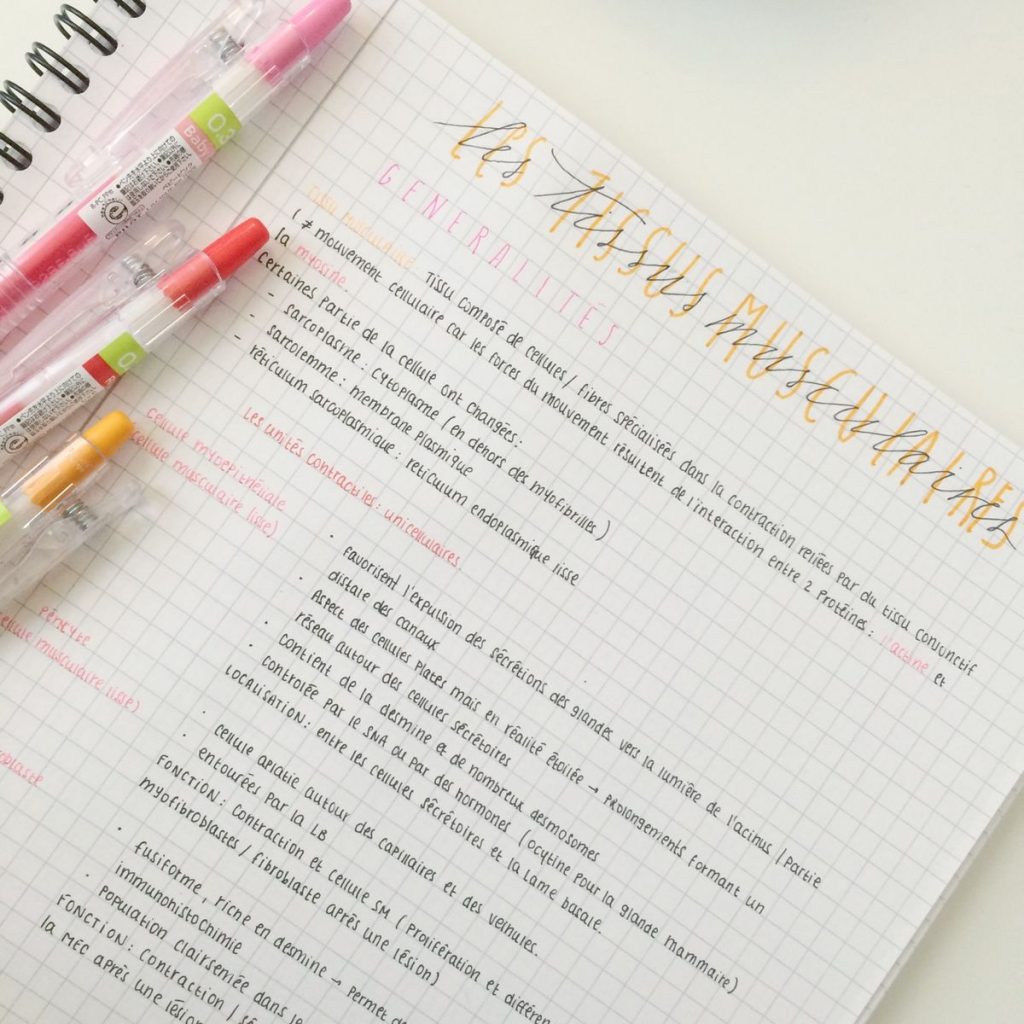 LES TISSUS MUSCULAIRES
les tissus musculaires
GENERALITÉS
Tissu musculaire Tissu composé de cellules / fibres spécialisées dans la contraction reliées par du tissu conjonctif
( ≠ mouvement cellulaire car les forces du mouvement résultent de l'interaction entre 2 protéines : l'actine et
la myosine.
Certaines partie de la cellule ont changées :
- sarcoplasme : cytoplasme ( en dehors des myofibrilles )
- sarcolemme : membrane plasmique
- réticulum sarcoplasmique : reticulum endoplasmique lisse
Les unités contractiles : unicellulaires
cellule myoépithéliale
cellule musculaire lisse)
• favorisent l'expulsion des sécrétions des glandes vers la lumière de l'acinus / partie
distale des canaux
• Aspect des cellules plates mais en réalité étoilée → prolongements formant un
réseau autour des cellules sécrétoires
• contient de la desmine et de nombreux desmosomes
• controlée par le SNA ou par des hormones ( ocytine pour la glande mammaire)
LOCALISATION : entre les cellules sécrétoires et la lame basale.
péricyte
cellule musculaire lisse)
• cellule aplatie autour des capillaires et des veinules.
• entourées par la LB
FONCTION : contraction et cellule SM ( prolifération et différen
myofibroblastes / fibroblaste après une lésion)
oblaste
• fusiforme, riche en desmine → permet
immunohistochimie
• population clairsemée dans le
FONCTION : contraction /
la MEC après une lésion
0.3
Baby
0.